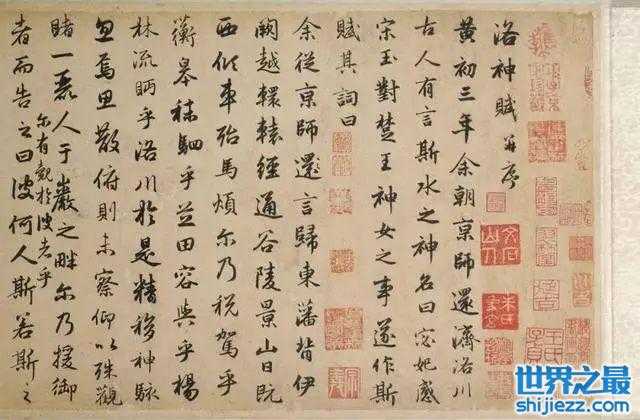 洛神賦 并序
黄初三年余朝京師還濟洛川
古人有言斯水之神名曰宓妃感
宋玉對楚王神女之事遂作斯
賦其詞曰
余從京師還言歸東藩背伊
闕越轘轅經通谷陵景山日既
西傾車殆馬煩尔乃税駕乎
蘅皋秣駟乎芝田容與乎楊
林流眄乎洛川於是精移神駭
忽焉思散俯則未察仰以殊觀
睹一麗人于巖之畔尔乃援御
尔有觀於彼者乎
者而告之曰彼何人斯若斯之
世界之最
shijiezz.com